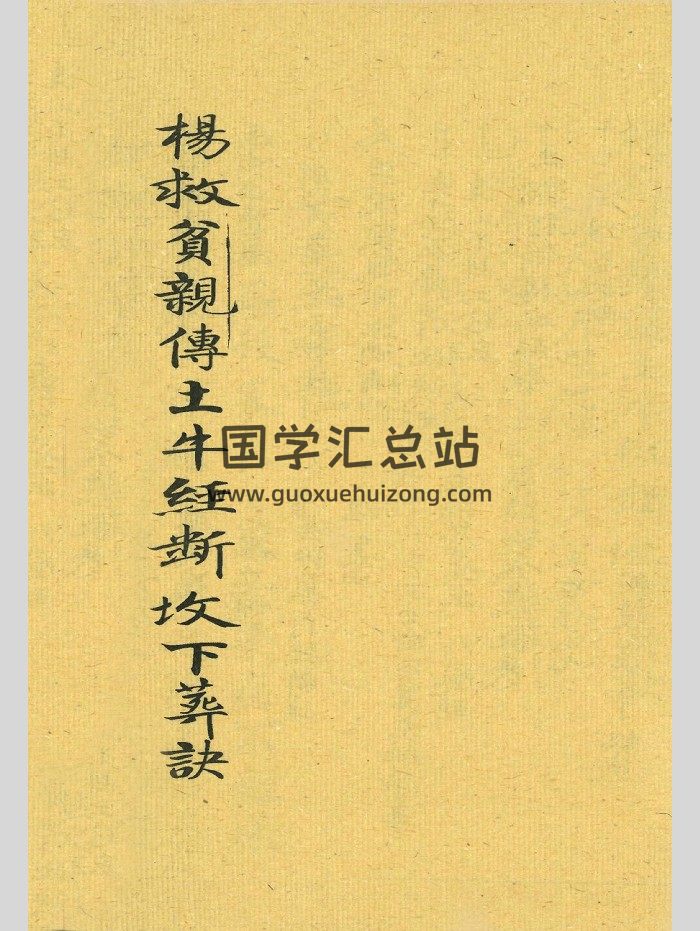 楊救貧親傳土牛經断坟下葬訣
国学汇总站
www.guoxuehuizong.com